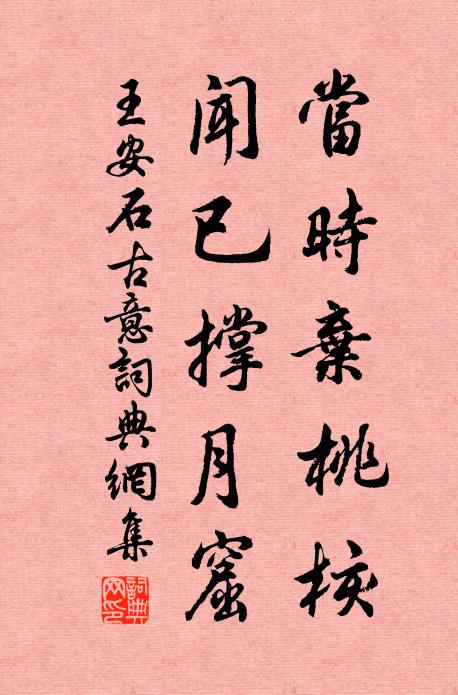 當時棄桃核
聞已撑月窟
王安石古意詞典網集
詞典網印